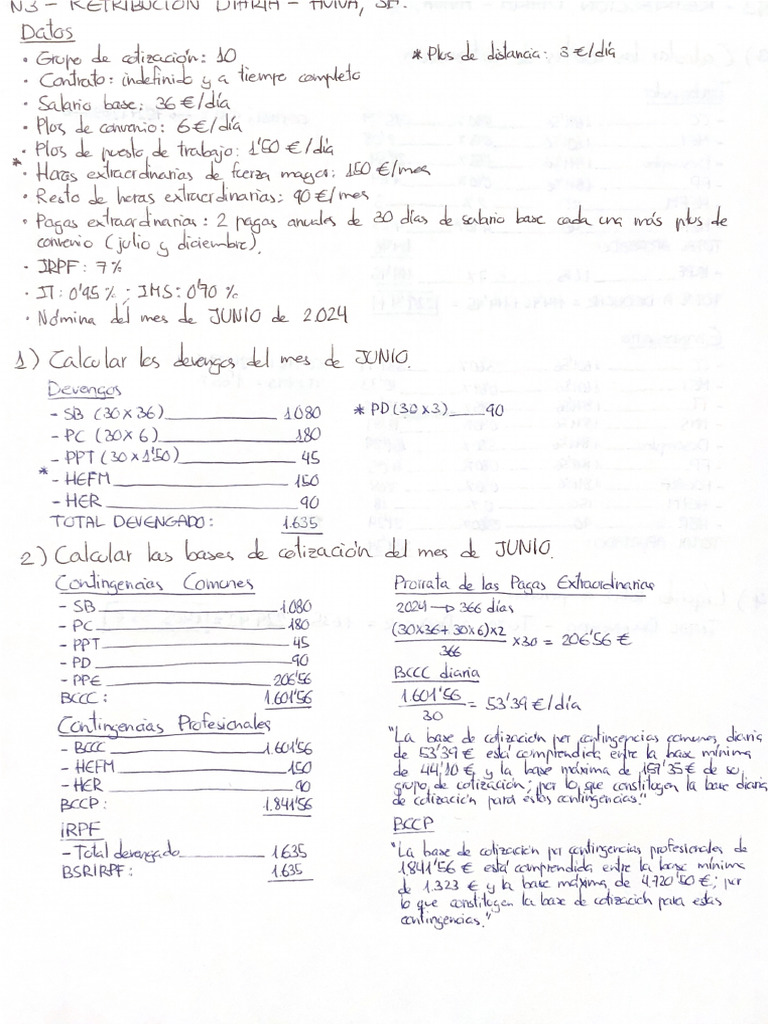 N3 - RETRIBUCIÓN DIARIA - AVIVA, SA.
Datos
· Grupo de cotización: 10
* Plus de distancia: 3 €/día
· Contrato: indefinido y a tiempo completo
· Salario base: 36 €/día
· Plus de convenio: 6 €/día
· Plus de puesto de trabajo: 1'50 €/día
* · Horas extraordinarias de fuerza mayor: 150 €/mes
· Resto de horas extraordinarias: 90 €/mes
· Pagas extraordinarias: 2 pagas anuales de 30 días de salario base cada una más plus de
convenio (julio y diciembre).
· IRPF: 7%
· IT: 0'95 % ; IMS: 0'70 %
· Nómina del mes de JUNIO de 2024
1) Calcular los devengos del mes de JUNIO.
Devengos
- SB (30 x 36) 1.080
* PD (30 x 3) 90
- PC (30 x 6) 180
- PPT (30 x 1'50) 45
* - HEFM 150
- HER 90
TOTAL DEVENGADO: 1.635
2) Calcular las bases de cotización del mes de JUNIO.
Contingencias Comunes
- SB 1.080
- PC 180
- PPT 45
- PD 90
- PPE 206'56
BCCC: 1.601'56
Contingencias Profesionales
- BCCC 1.601'56
- HEFM 150
- HER 90
BCCP: 1.841'56
IRPF
- Total devengado 1.635
BSRIRPF: 1.635
Prorrata de las Pagas Extraordinarias
2024 → 366 días
(30x36 + 30x6) x 2
366
x 30 = 206'56 €
BCCC diaria
1.601'56
30
= 53'39 €/día
"La base de cotización por contingencias comunes diaria
de 53'39 € está comprendida entre la base mínima
de 44'10 € y la base máxima de 157'35 € de su
grupo de cotización; por lo que constituyen la base diaria
de cotización para estas contingencias."
BCCP
"La base de cotización por contingencias profesionales de
1.841'56 € está comprendida entre la base mínima
de 1.323 € y la base máxima de 4.720'50 €; por
lo que constituyen la base de cotización para estas
contingencias."